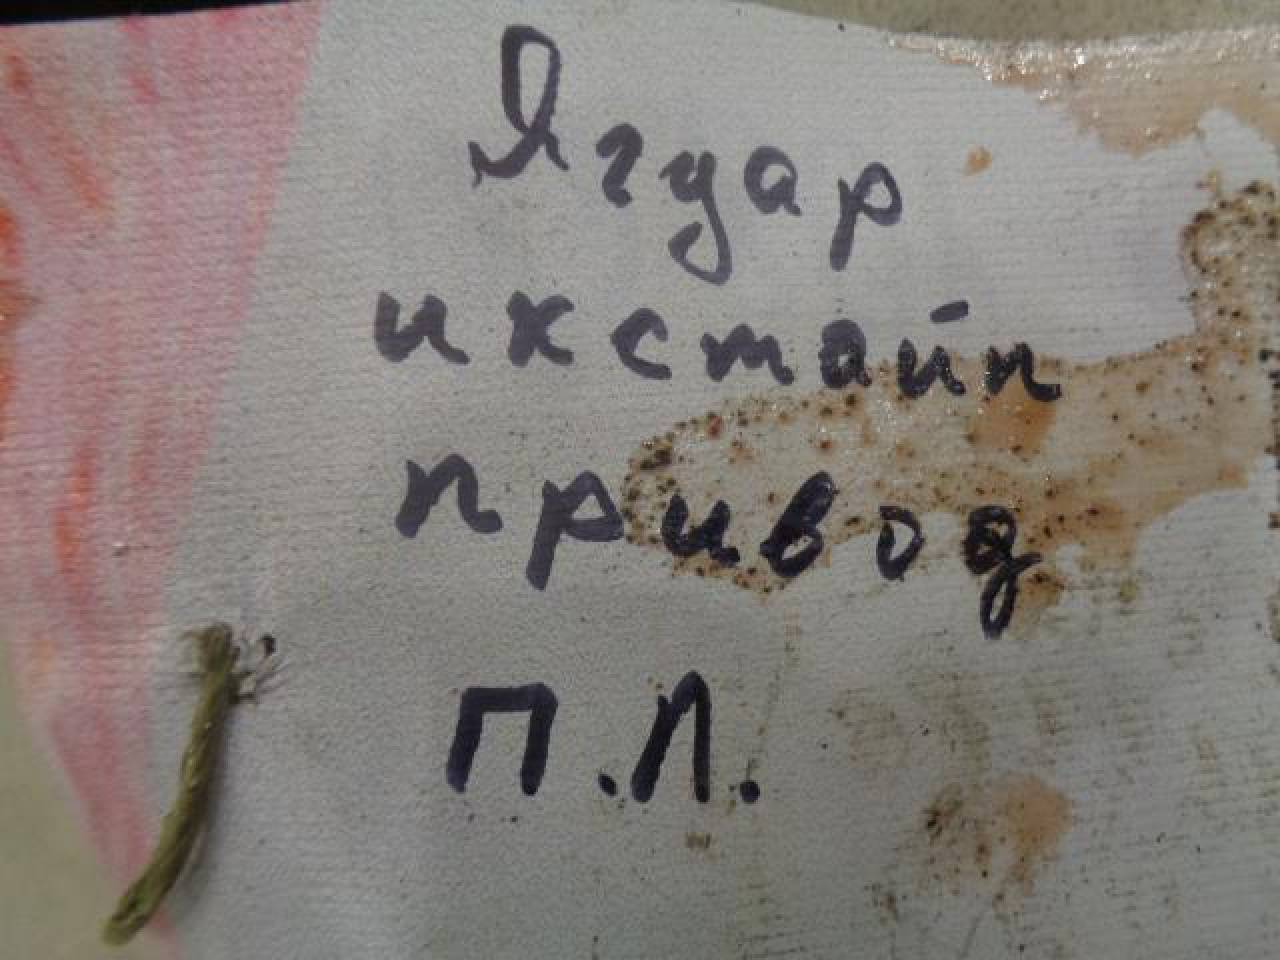 Ягуар
икстайп
привод
П.Л.